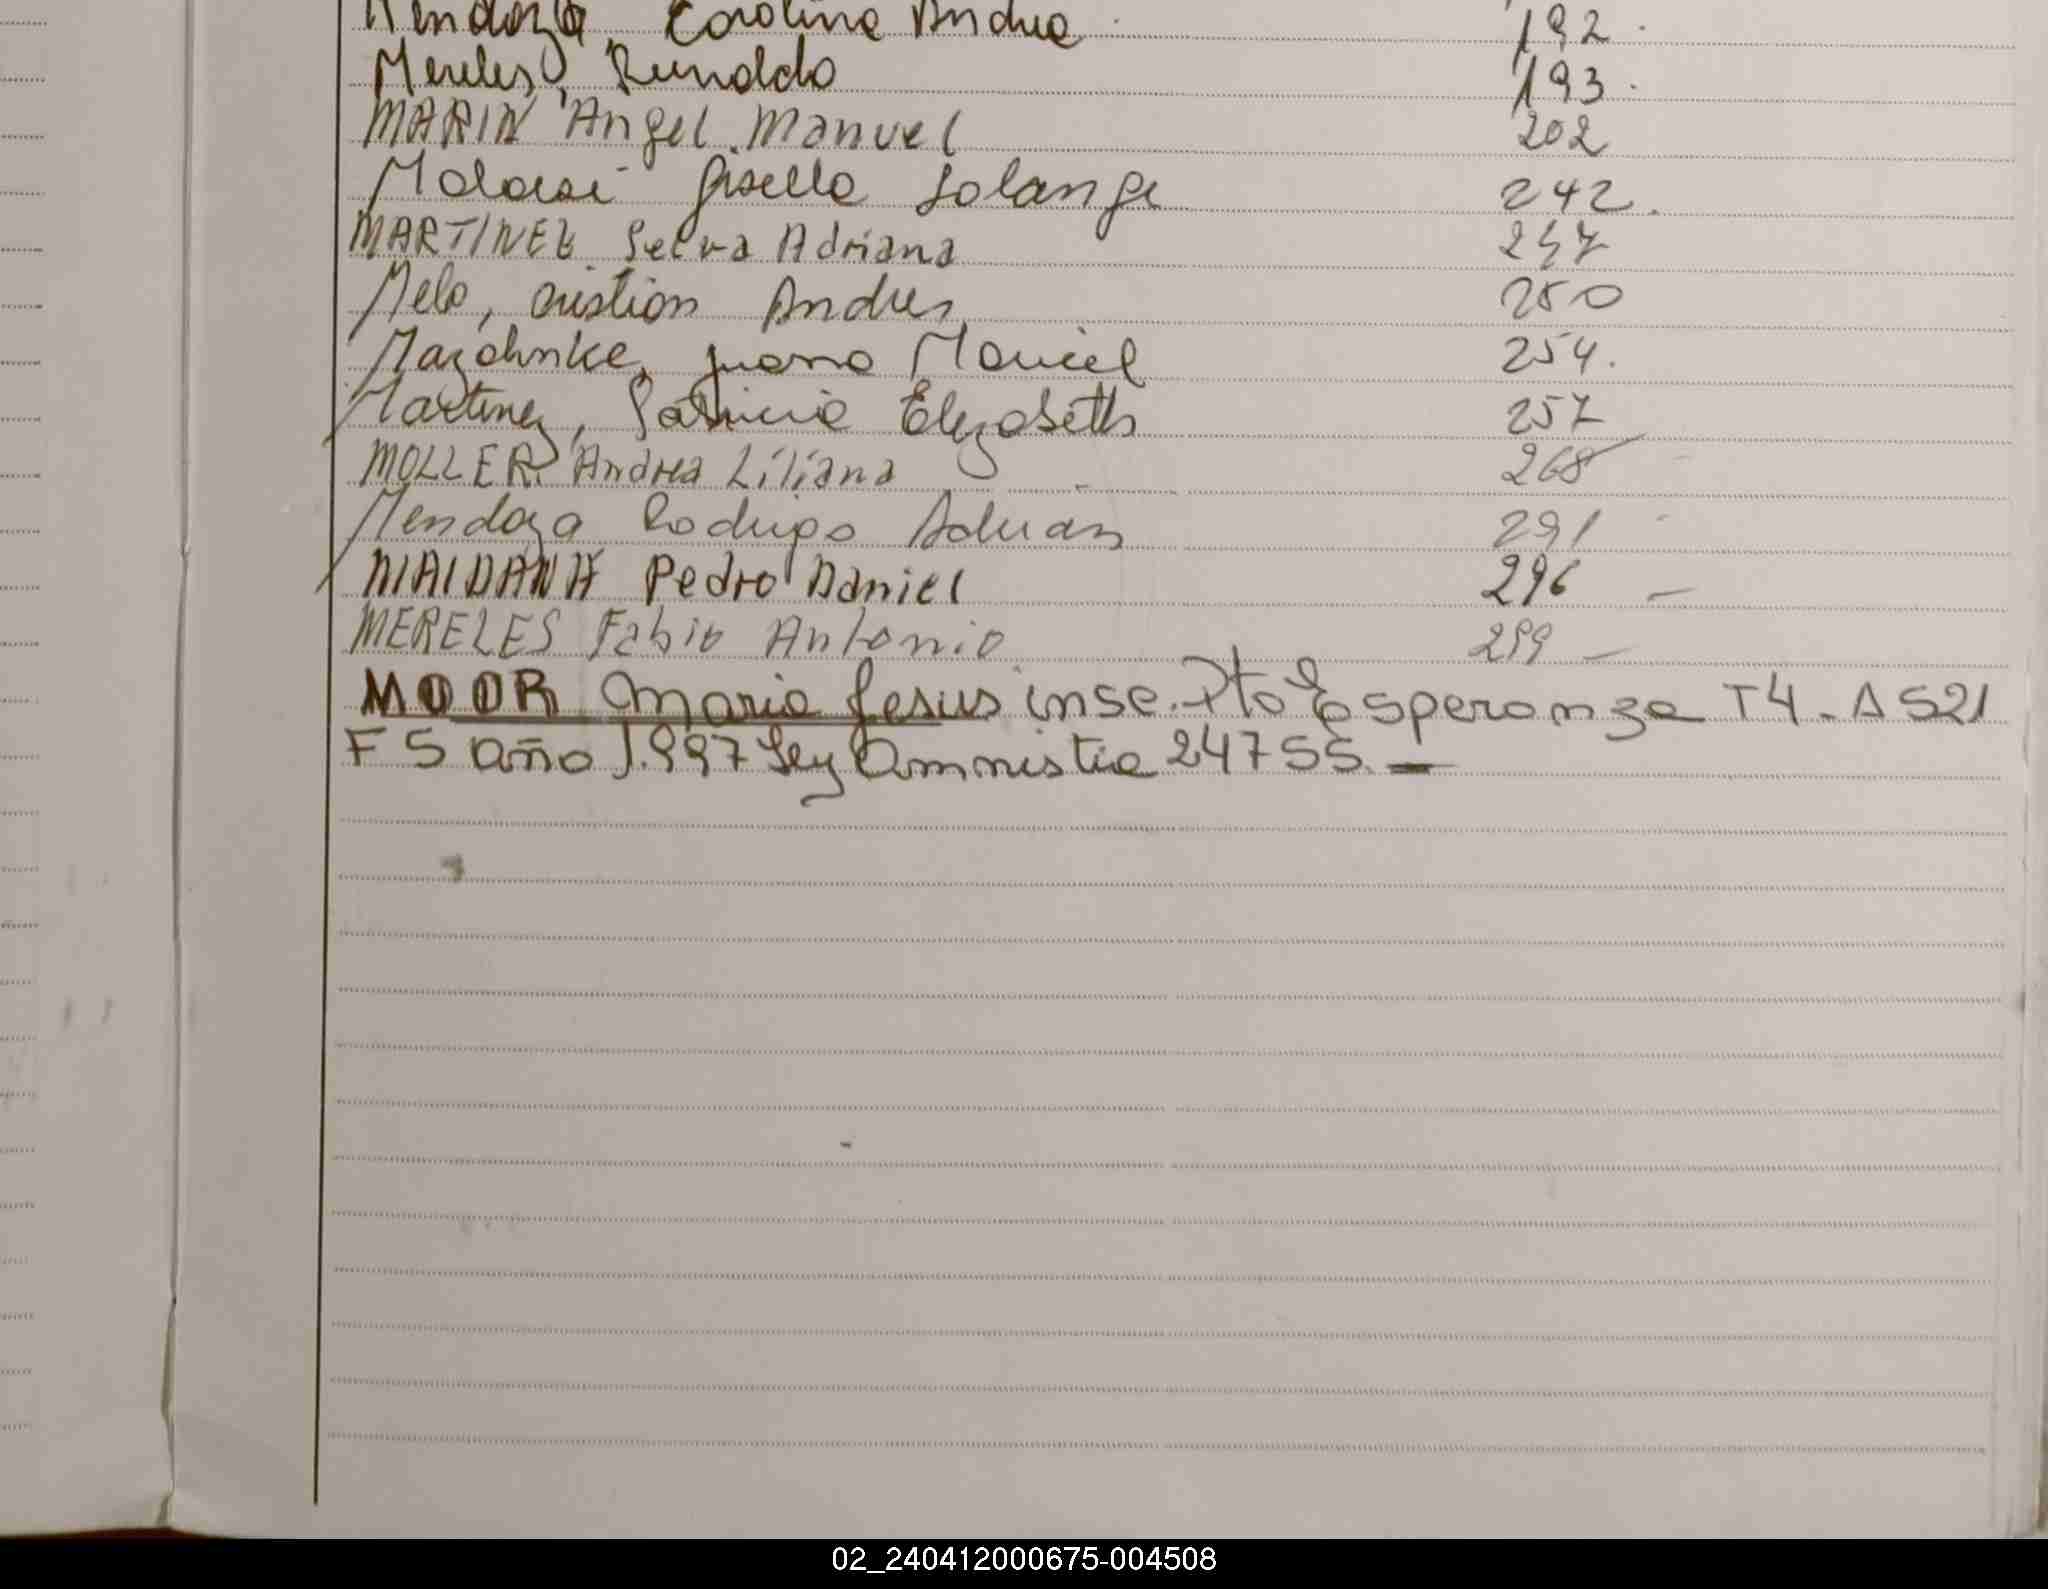 Mendoza Carolina Andrea 192.
Mereles, Runaldo 193.
MARIN Angel Manuel 202
Gisella Solange 242.
MARTINEZ Selva Adriana 247
Melo, Cristian Andres 250
Juana Maricel 254.
Martinez, Patricia Elizabeth 257
MOLLER Andrea Liliana 268
Mendoza Rodrigo Adrian 291
MAIDANA Pedro Daniel 296 -
MERELES Fabio Antonio 299 -
MOOR Maria Jesus insc. Pto Esperanza T4-A521
F5 año 1.997 Ley Amnistia 24755.-
02_240412000675-004508